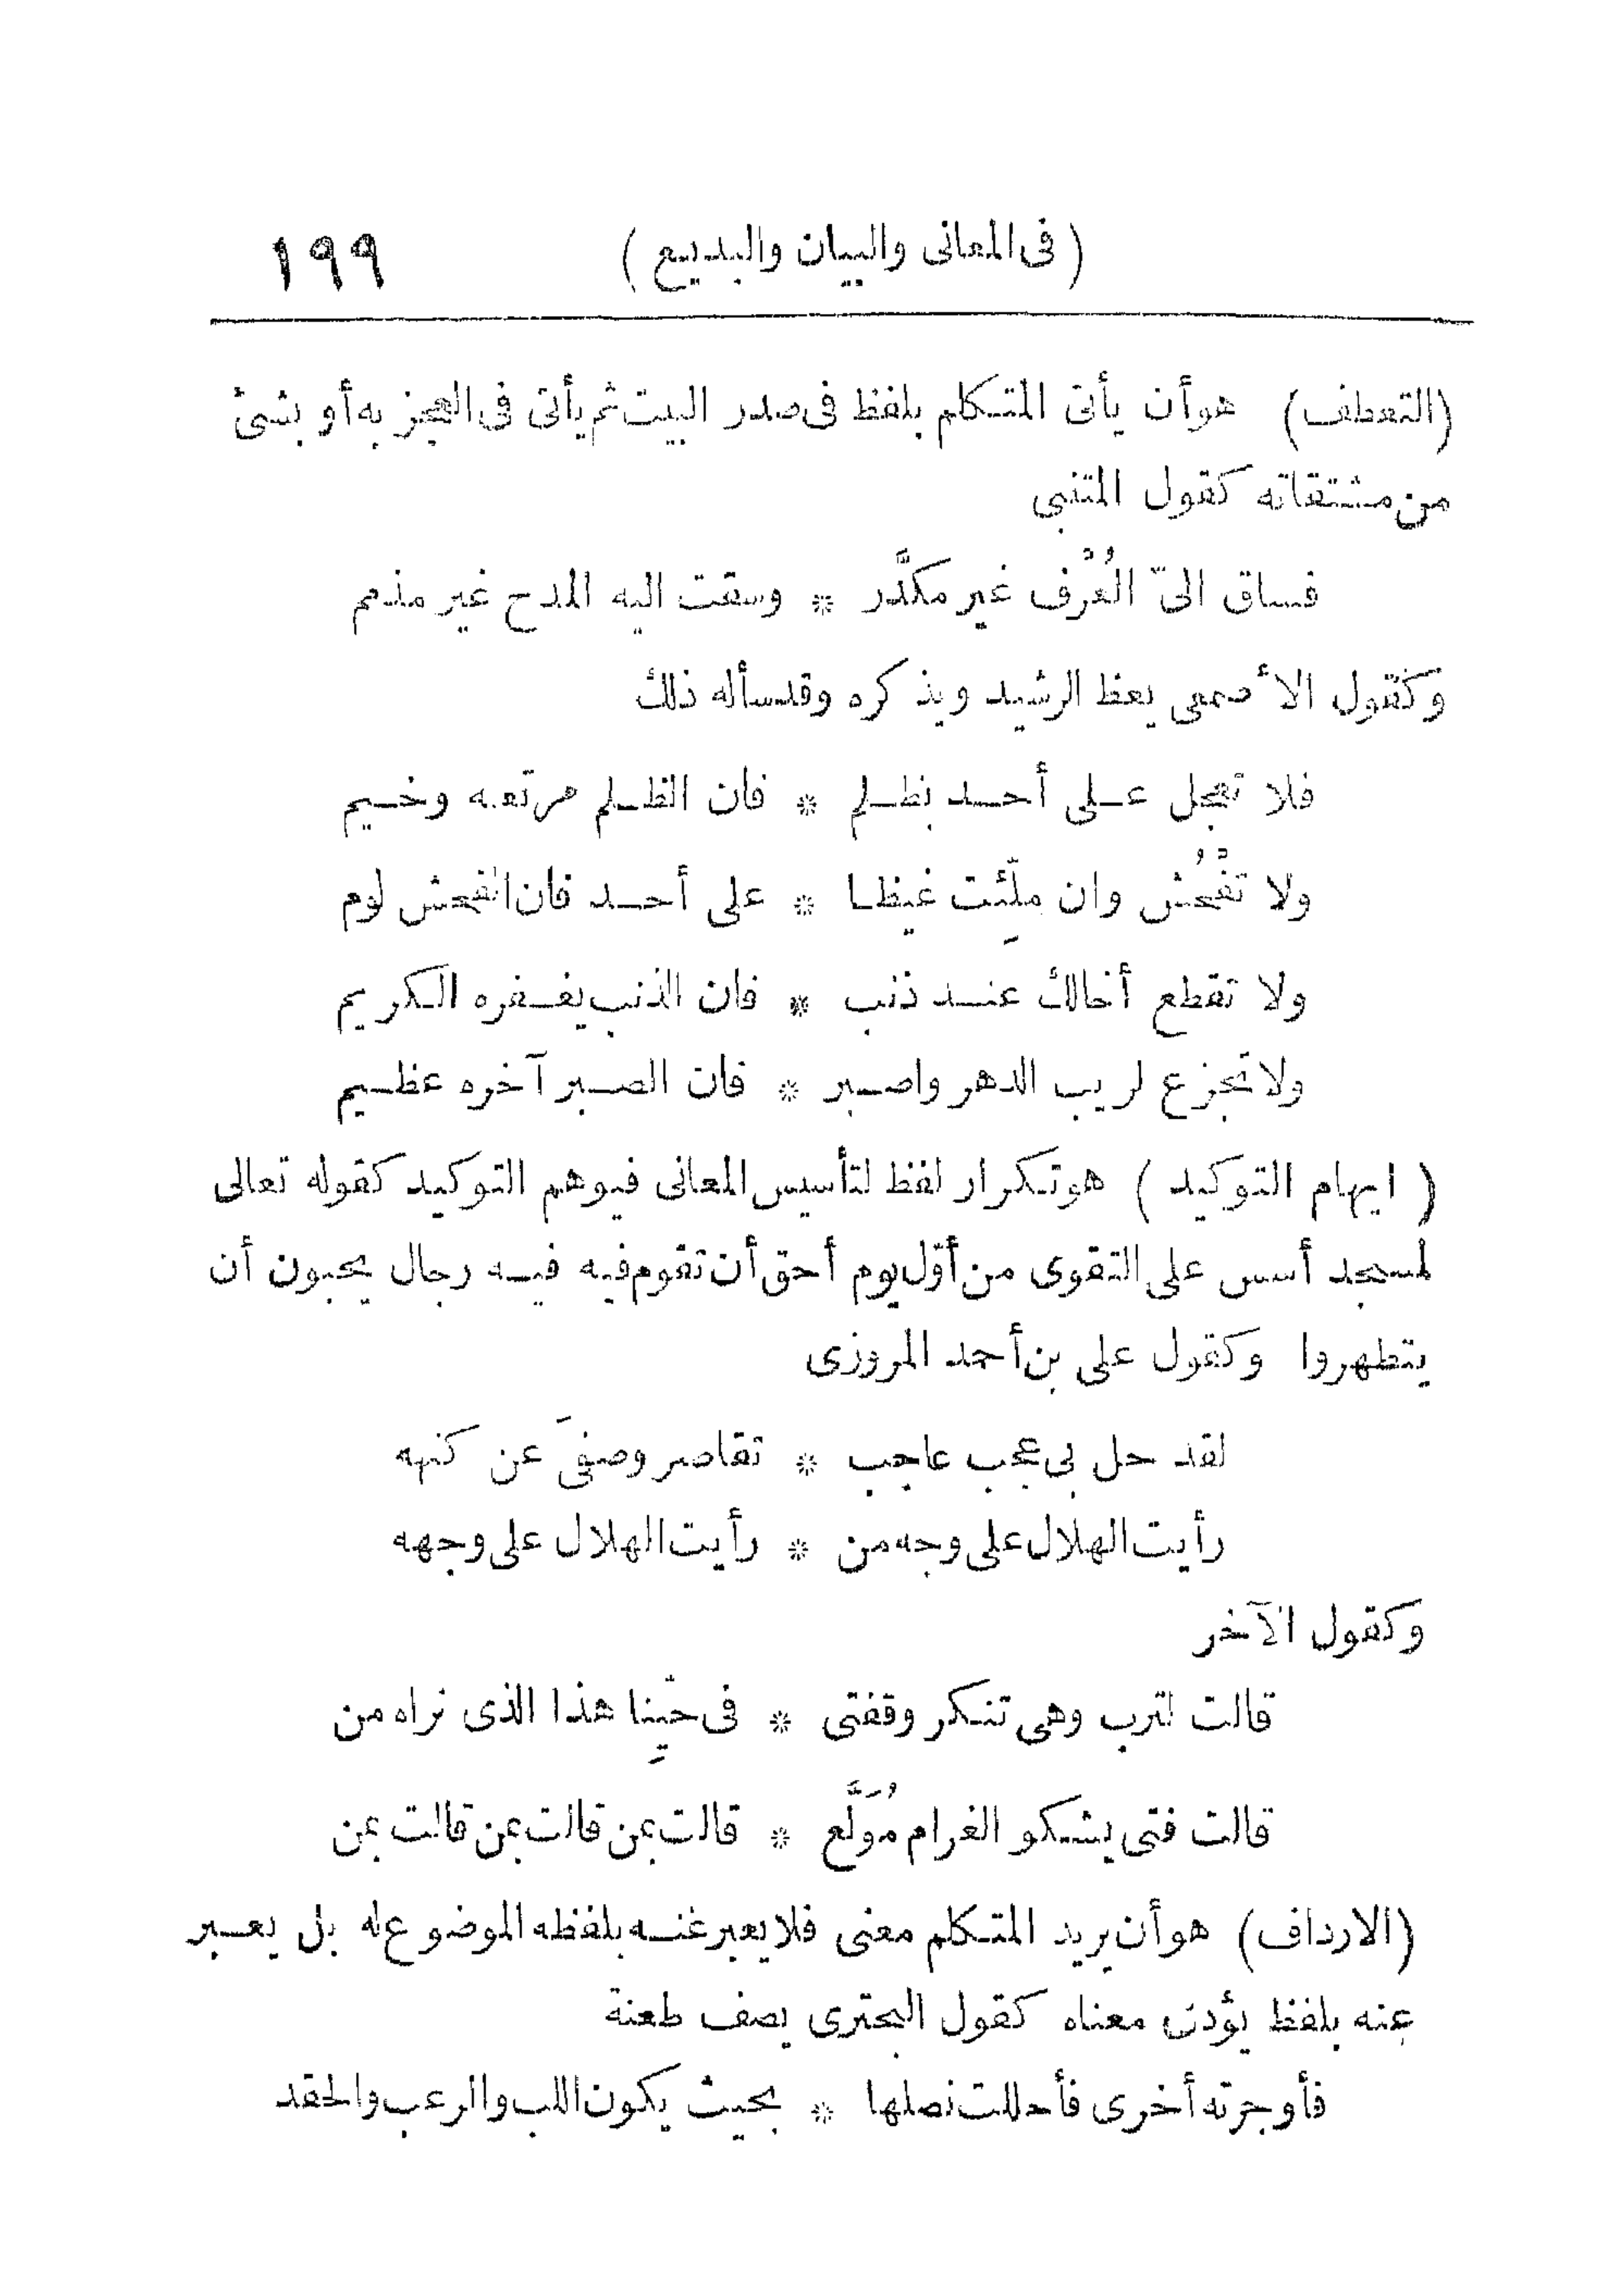 (فى المعانى والبيان والبديع) ١٩٩
(التعطف) هو أن يأتى المتكلم بلفظ فى صدر البيت ثم يأتى فى العجز به أو بشئ
من مشتقاته كقول المتنبى
فساق الىّ العُرْف غير مكدَّر * وسقت اليه المدح غير مذمم
وكقول الأصمعى يعظ الرشيد ويذكره وقد سأله ذلك
فلا تعجل على أحد بظلم * فان الظلم مرتعه وخيم
ولا تفْحُش وان مِلّئت غيظا * على أحد فان الفحش لوم
ولا تقطع أخالك عند ذنب * فان الذنب يغفره الكريم
ولا تجزع لريب الدهر واصبر * فان الصبر آخره عظيم
(ايهام التوكيد) هو تكرار لفظ لتأسيس المعانى فيوهم التوكيد كقوله تعالى
لمسجد أسس على التقوى من أوّل يوم أحق أن تقوم فيه فيه رجال يحبون أن
يتطهروا وكقول على بن أحمد المروزى
لقد حل بى عجب عاجب * تقاصر وصفىَ عن كنهه
رأيت الهلال على وجه من * رأيت الهلال على وجهه
وكقول الآخر
قالت لترب وهى تنكر وقفتى * فى حيّنِا هذا الذى نراه من
قالت فتى يشكو الغرام مُوَلَّع * قالت بمن قالت بمن قالت بمن
(الارداف) هو أن يريد المتكلم معنى فلا يعبر عنه بلفظه الموضوع له بل يعبر
عنه بلفظ يؤدى معناه كقول البحترى يصف طعنة
فأوجرته أخرى فأحللت نصلها * بحيث يكون اللب والرعب والحقد